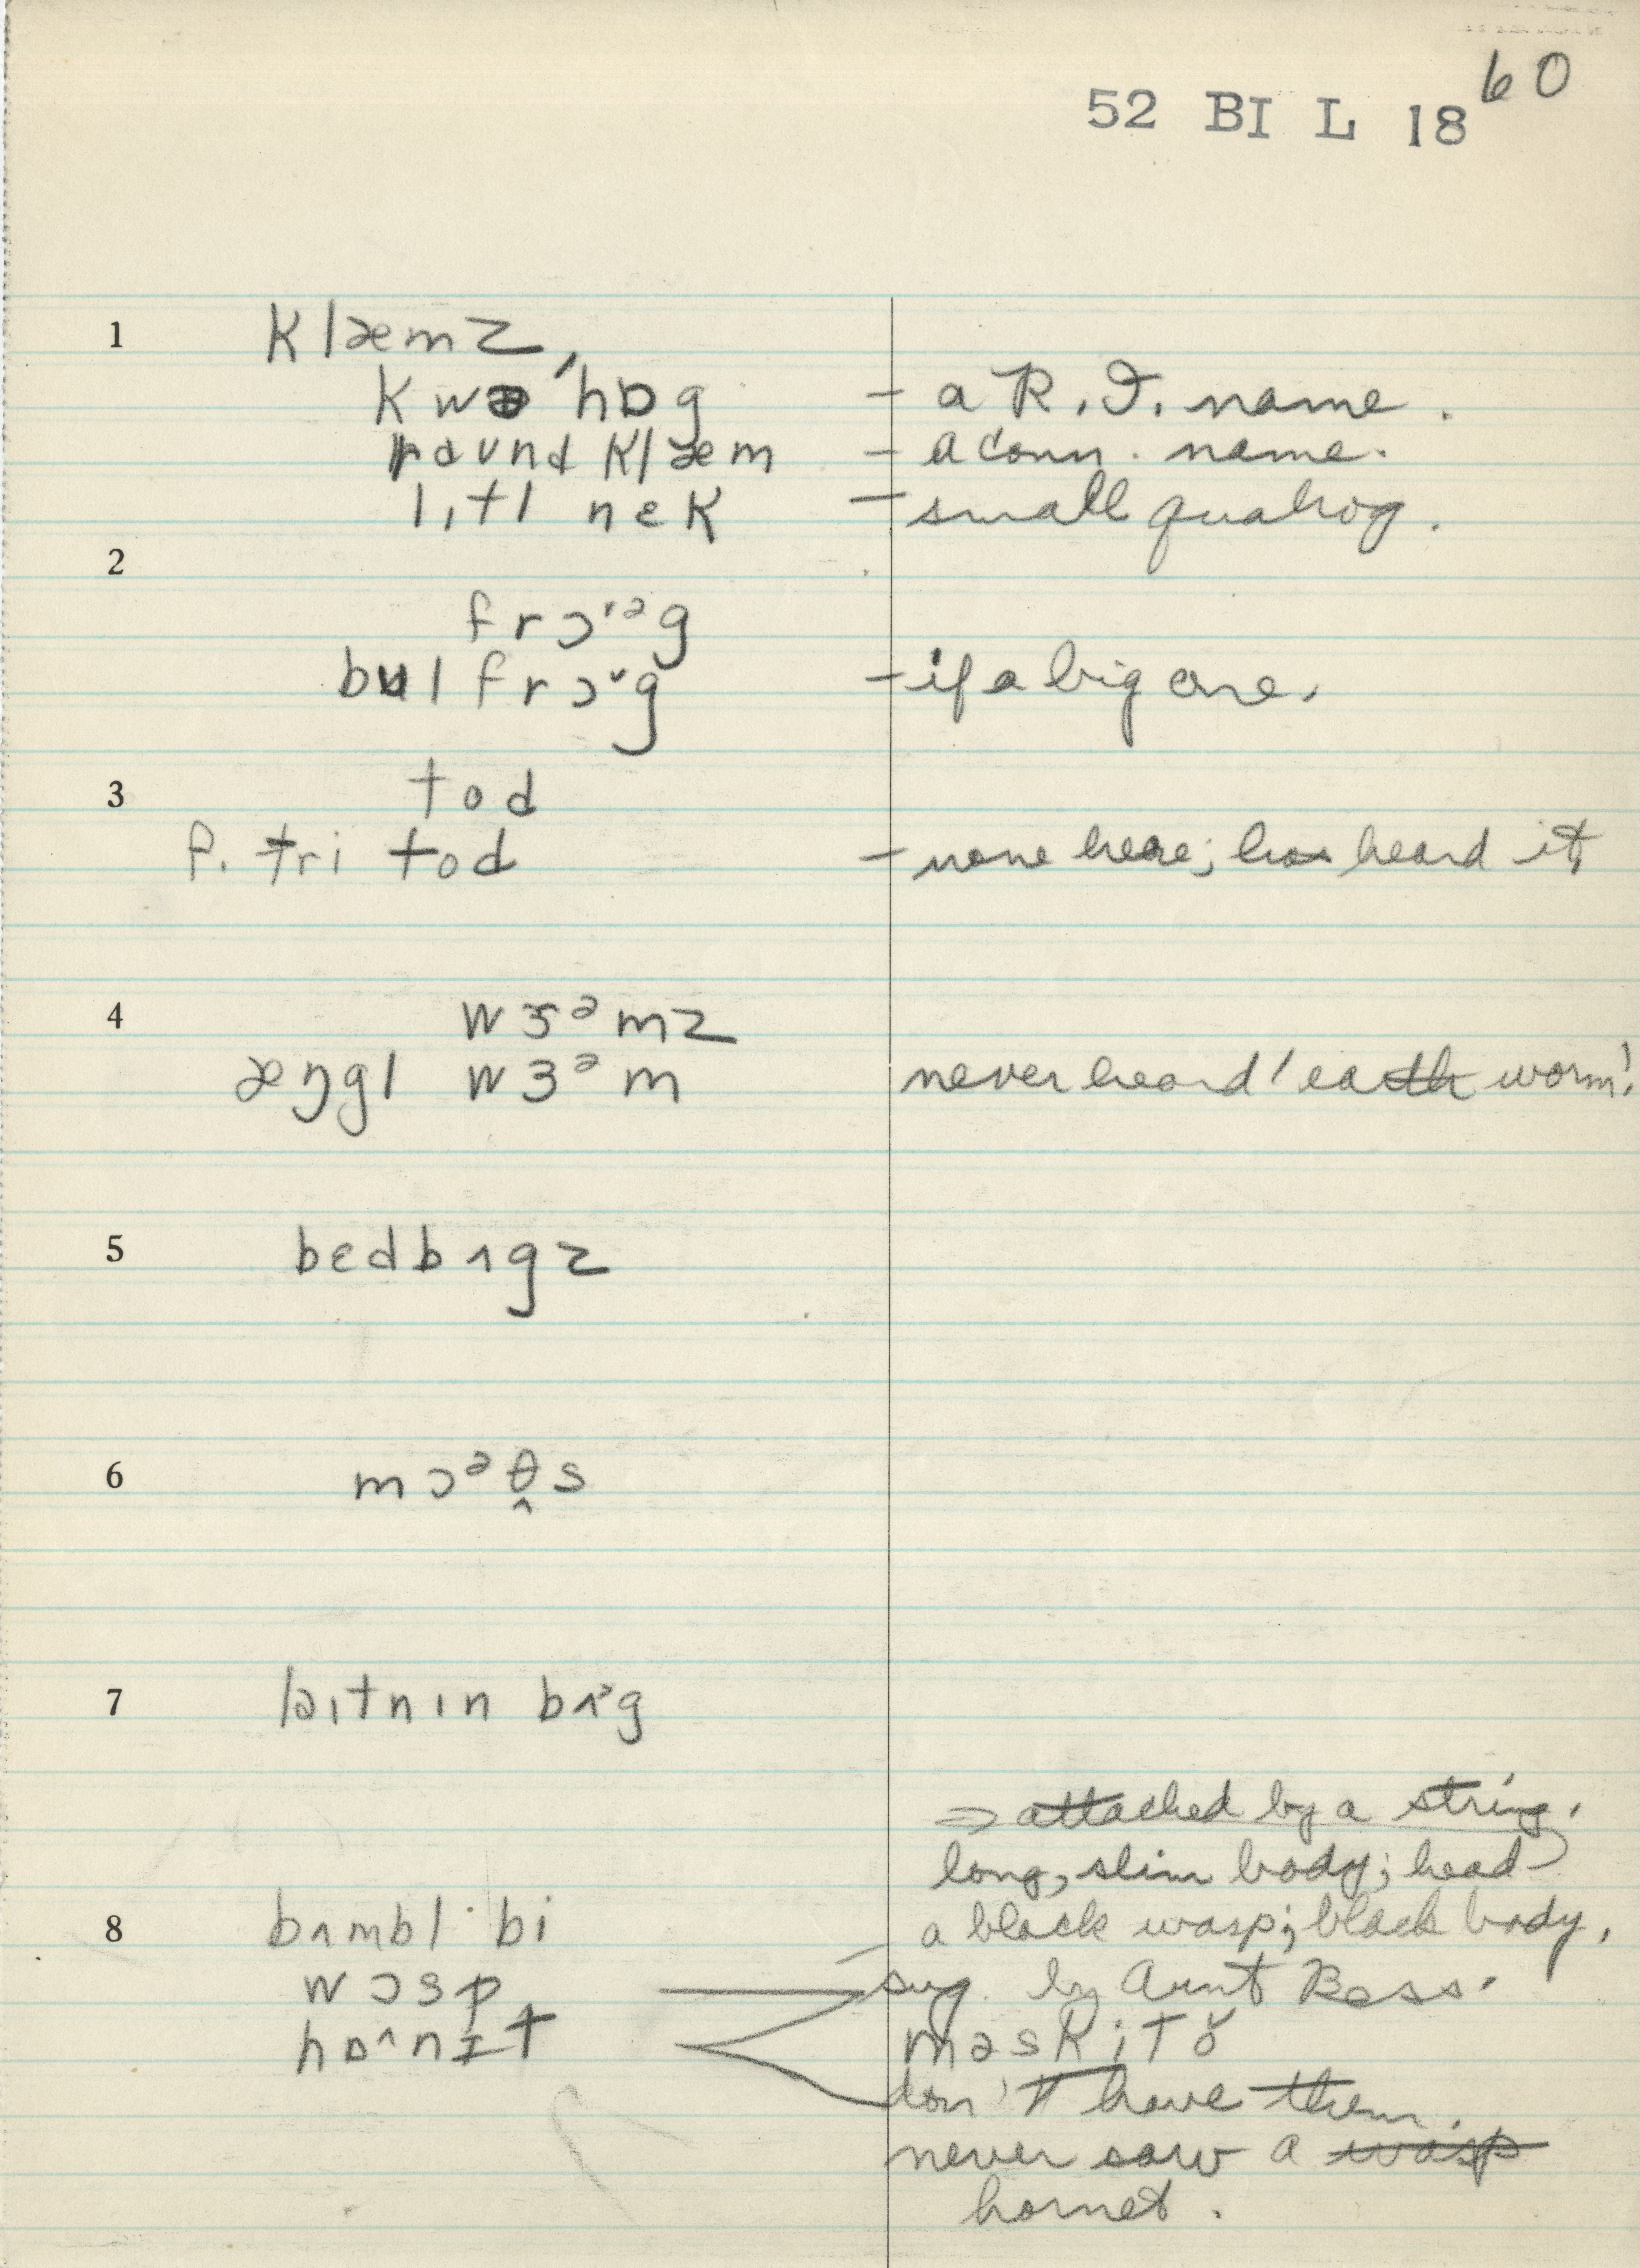 52 BI L 18 60
1 klæmz,
kwə'hɒg – a R.I. name.
raʊnd klæm – a Conn. name.
lɪtl nek – small quahog.
2
frɔ˞ᵊg
bʊl frɔ˞g – if a big one.
3 tod
f. tri tod – none here; has heard it
4 wɜᵊmz
æŋgl wɜᵊm never heard 'earth worm'.
5 bɛdbʌgz
6 mɔᵊθ̭s
7 laɪtnɪn bʌ˞g
⇒ attached by a string.
long, slim body; head
8 bʌmbl· bi a black wasp; black body,
wɔsp sug. by Aunt Bess.
hɒ^nɪt məskitə
don't have them.
never saw a wasp
hornet.